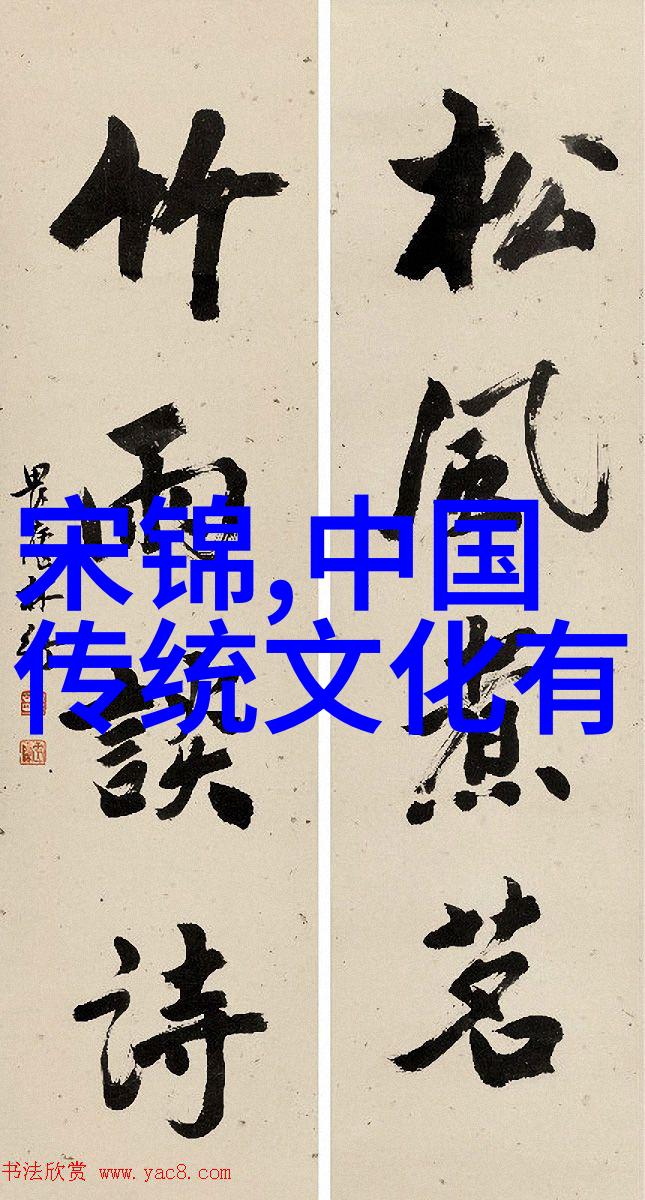 松風煮茗
竹雨談詩
宋锦,中国
传统文化有
书法欣赏 www.yac8.com